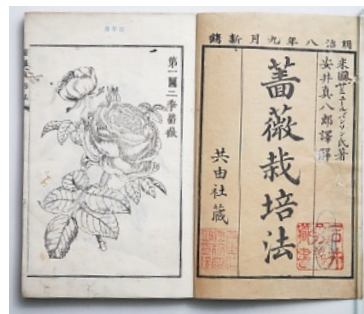 明治八年九月新鐫
米國ヘンデルソン氏著
安井真八郎譯解
薔薇栽培法
共由社蔵
第一圖二季薔薇